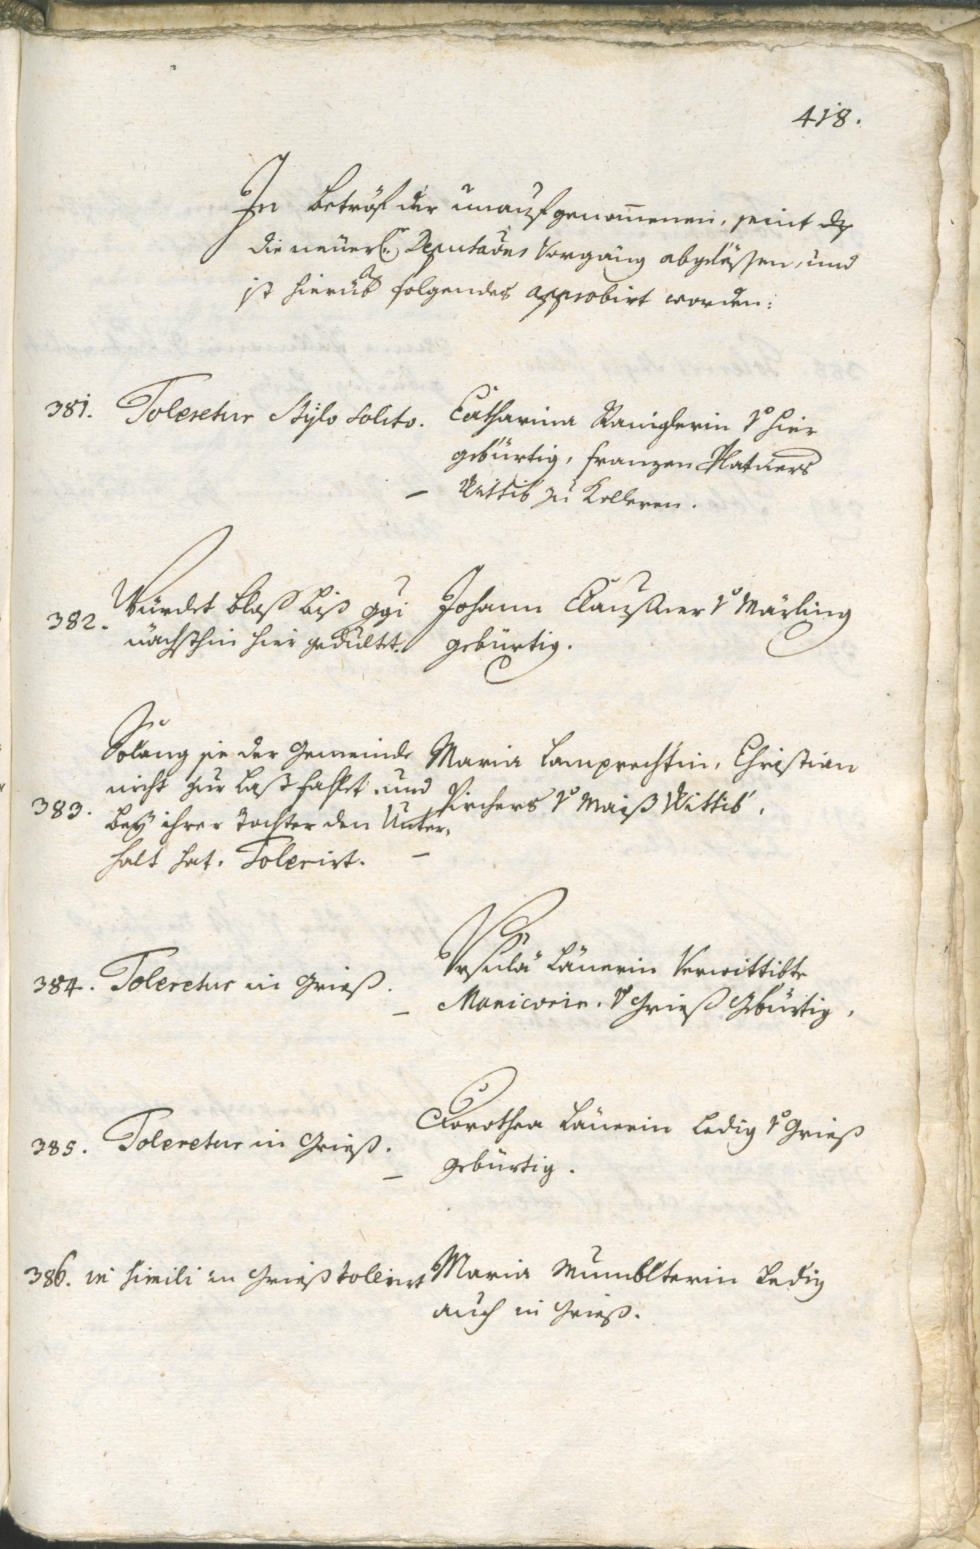 418.
In betröf der unaufgenommenen, seint
die neuerl: Deputaons Vorgäng abgelössen, und
ist hierüb folgendes approbirt worden:
381. Toleretur Stylo solito.
Catharina Raniglerin v hier
gebürtig, franzen Platners
Wittib zu Kolleren.
382. Würdet blos biß ggi
nächsthin hier gedultt.
Johann Claußner v Märling
gebürtig.
383. Solang sie der Gemeinde
nicht zur Last fallet, und
bey ihrer Tochter den Unter-
halt hat, Tolerirt.
Maria Lamprechtin, Christian
Pirchers v Maiß Wittib.
384. Toleretur in Grieß.
Ursula Länerin Verwittibte
v Grieß Gebürtig.
385. Toleretur in Grieß.
Dorothea Länerin Ledig v Grieß
gebürtig.
386. in simili in Grieß tolerirt
Maria Mumblterin Ledig
auch in Grieß.